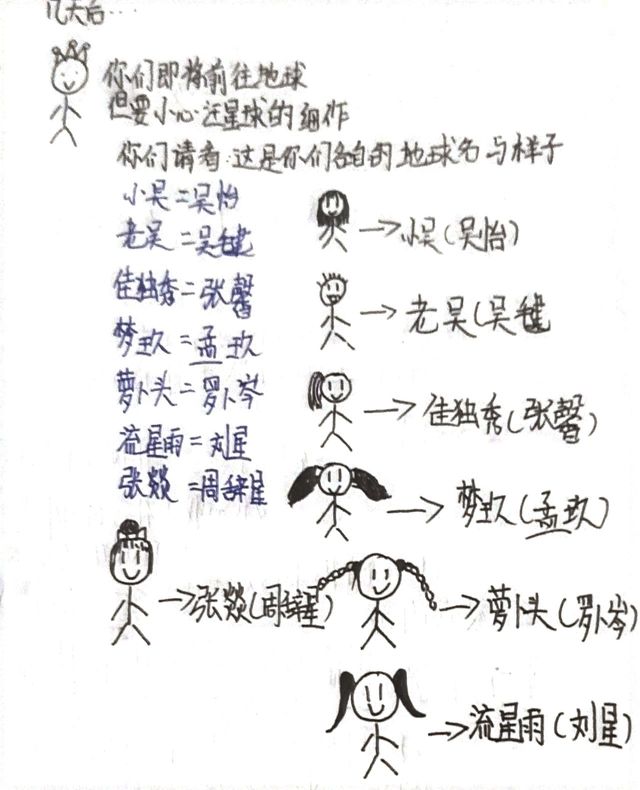 几天后…
你们即将前往地球
但要小心汪星球的细作
你们请看:这是你们各自的地球名与样子
小吴=吴怡
老吴=吴毽
佳独秀=张馨
梦玖=孟玖
萝卜头=罗卜岑
流星雨=刘星
张燚=周辞星
→小吴(吴怡)
→老吴(吴毽
→佳独秀(张馨)
→梦玖(孟玖)
→张燚(周辞星)
→萝卜头(罗卜岑)
→流星雨(刘星)